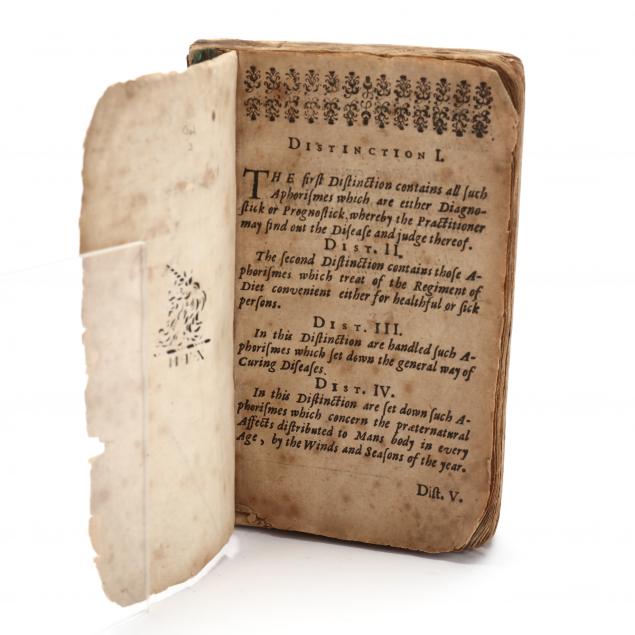 DISTINCTION I.
THE firſt Diſtinction contains all ſuch
Aphoriſmes which are either Diagno-
ſtick or Prognoſtick, whereby the Practitioner
may find out the Diſeaſe and judge thereof.
DIST. II.
The ſecond Diſtinction contains thoſe A-
phoriſmes which treat of the Regiment of
Diet convenient either for healthful or ſick
perſons.
DIST. III.
In this Diſtinction are handled ſuch A-
phoriſmes which ſet down the general way of
Curing Diſeaſes.
DIST. IV.
In this Diſtinction are ſet down ſuch A-
phoriſmes which concern the præternatural
Affects diſtributed to Mans body in every
Age, by the Winds and Seaſons of the year.
Diſt. V.